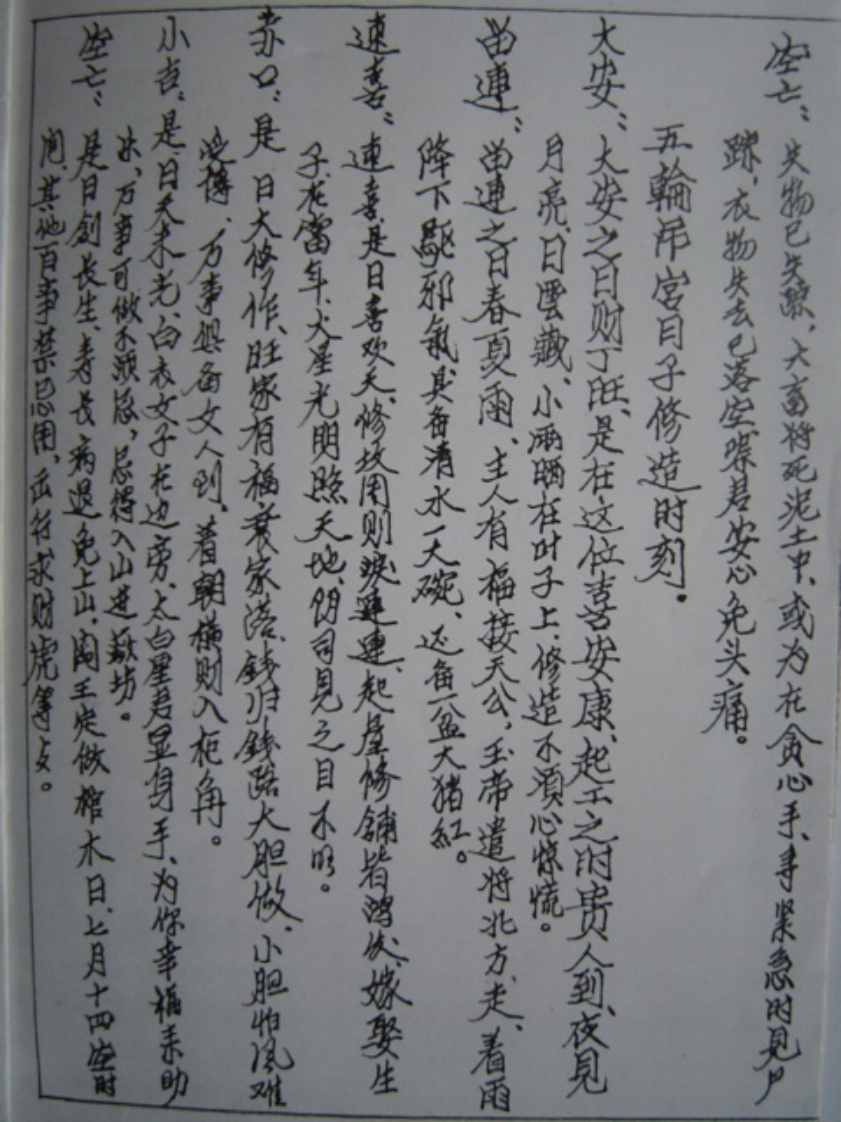 空亡：失物已失踪，六畜将死泥土中、或为在贪心手、寻紧急时见尸
踪，衣物失去已落空、踪君安心免头痛。
五輪吊宫日子修造时刻。
大安：大安之日财丁旺、是在这位喜安康、起工之时贵人到、夜见
月亮、日雲藏、小雨晒在叶子上、修造不须心惊慌。
留連：留連之日春夏雨、主人有福接天公，玉帝遣将北方走、着雨
降下驅邪氣、具备清水一大碗、还备一盆大猪紅。
速喜：速喜是日喜欢天、修坟用则淚連連、起屋修鋪皆鸿伏、嫁娶生
子在當年、火星光明照天地、阴司見之目不明。
赤口：是日大修作、旺家有福衰家落、錢归錢路大胆做、小胆怕凤难
、万事俱备女人到、着朝横财入柜角。
小吉：是日天未光、白衣女子在边旁、太白星君显身手、为你幸福来助
、万事可做不须忌，忌得入山进蔗坊。
空亡：是日劍长生、寿长病退免上山、阎王定做棺木日、七月十四空时
间、其他百事禁忌用，出行求财虎等